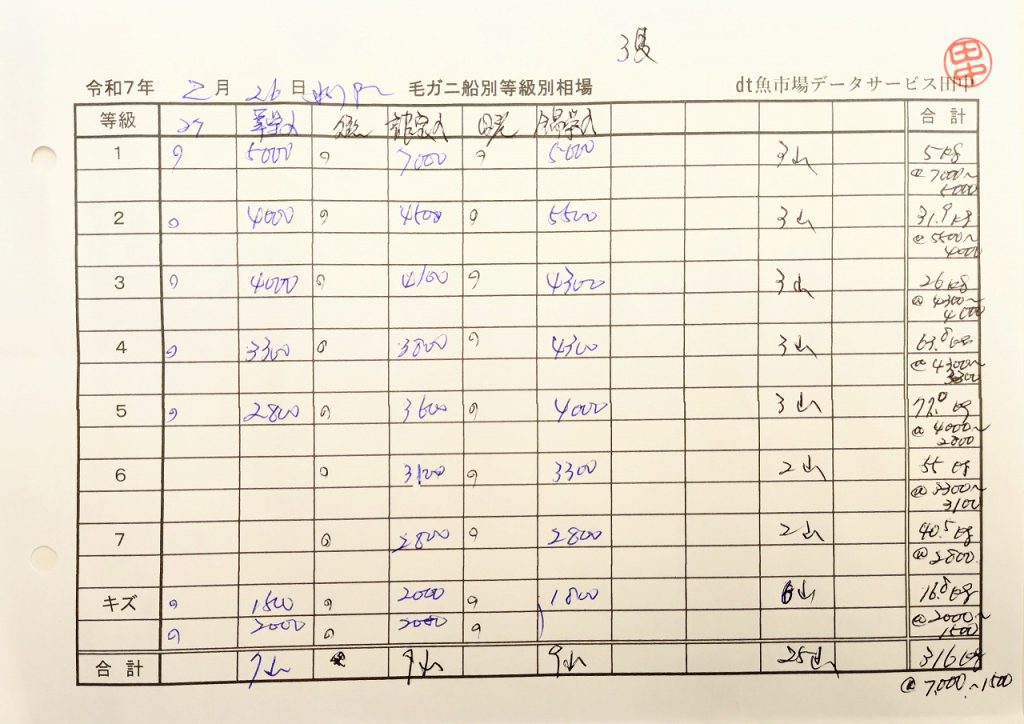 3隻
田中
令和7年 2月 26日 毛ガニ船別等級別相場 dt魚市場データサービス田中
等級 27 合計
1 5000 7000 5000 3山 5kg
@7000～
5000
2 4000 4500 5500 3山 31.9kg
@5500～
4000
3 4000 4100 4300 3山 26kg
@4300～
4000
4 3300 3800 4300 3山 63.8kg
@4300～
3300
5 2800 3600 4000 3山 77.0kg
@4000～
2800
6 3100 3300 2山 55kg
@3300～
3100
7 2800 2800 2山 40.5kg
@2800
キズ 1500 2000 1800 6山 16.8kg
2000 2000 @2000～
1500
合計 7山 9山 9山 25山 316kg
@7,000～1500